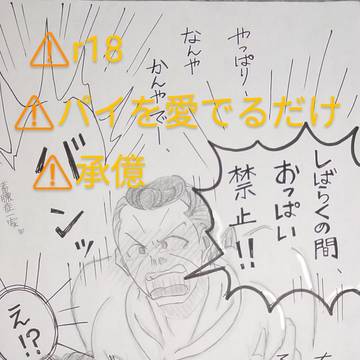 ⚠️r18
⚠️パイを愛でるだけ
⚠️承億
やっぱり、
なんや
かんやでー、
バンッ
しばらくの間、
おっぱい
禁止!!
え!?